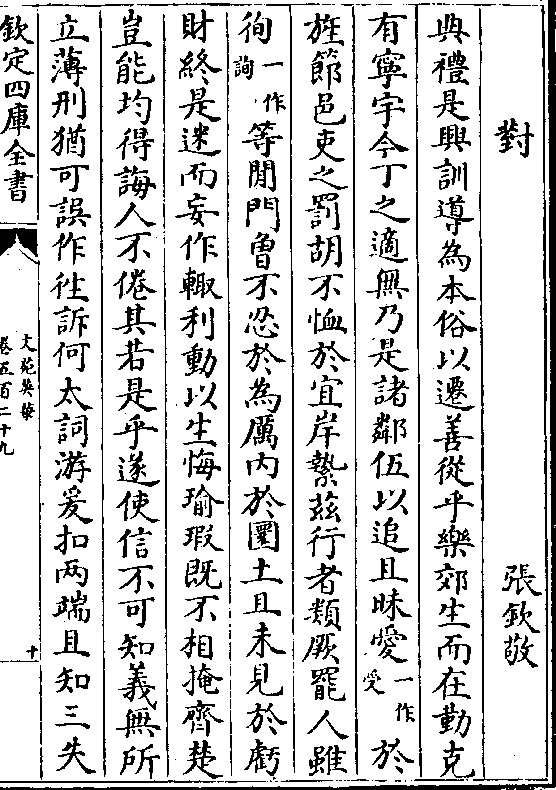 對
張欽敬
典禮是興訓導為本俗以遷善從乎樂郊生而在勤克
有寧宇今丁之適無乃是諸鄰伍以追且昧愛一作受於
旌節邑吏之罰胡不恤於宜岸縶茲行者類厥罷人雖
徇一作詢等閒門曾不忍於為厲内於圜土且未見於虧
財終是迷而妄作輙利動以生悔瑜瑕既不相掩齊楚
豈能均得誨人不倦其若是乎遂使信不可知義無所
立薄刑猶可誤作徃訴何太詞游爰扣两端且知三失
欽定四庫全書
文苑英華
卷五百二十九
十